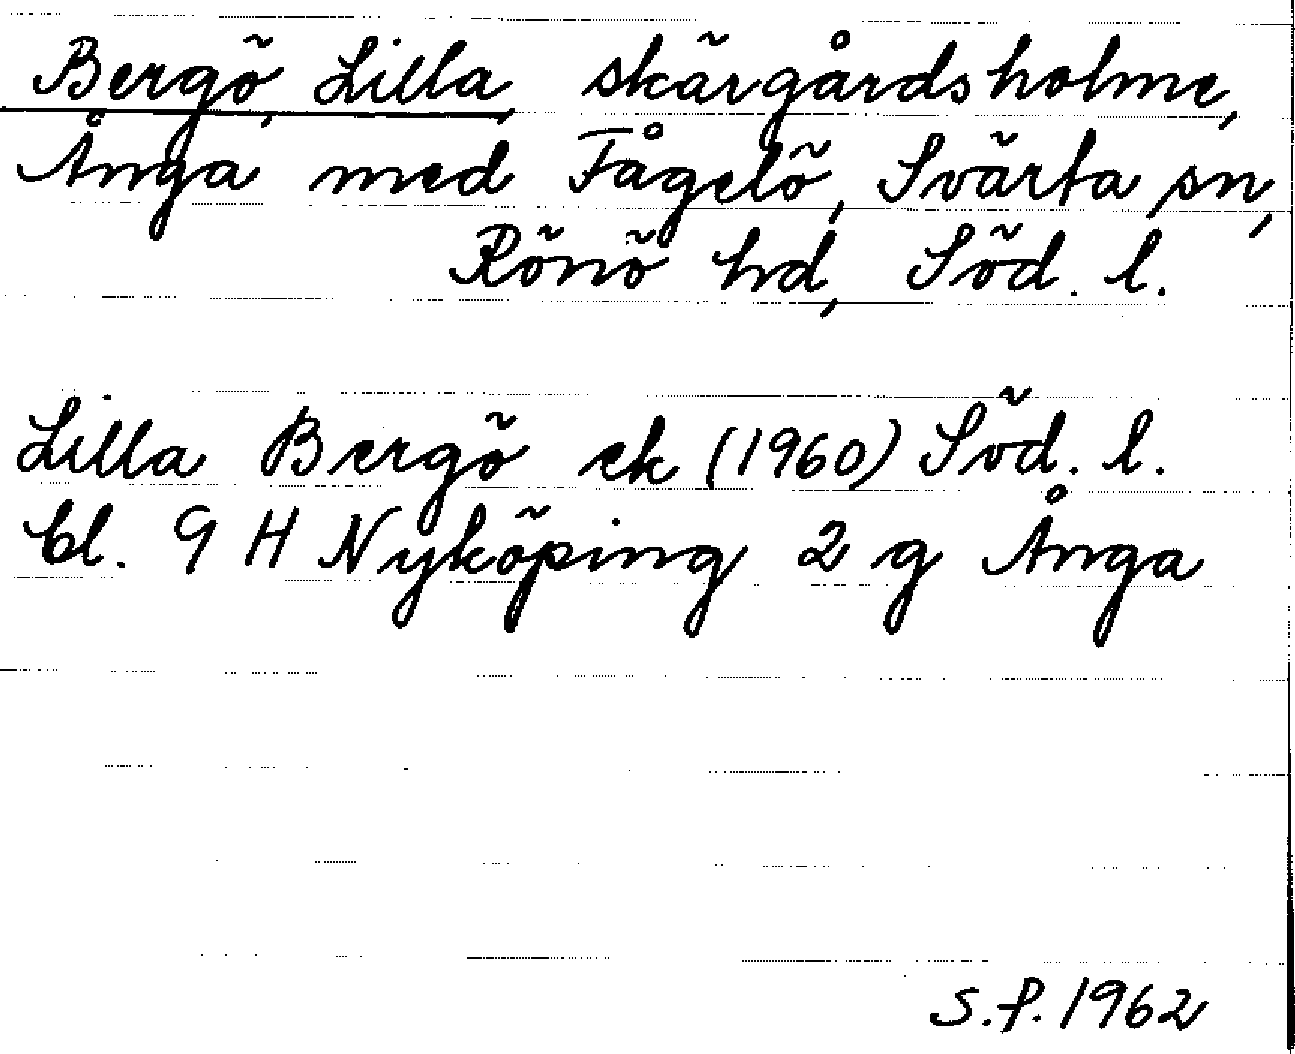 Bergö, Lilla, skärgårdsholme,
Ånga med Fågelö, Svärta sn,
Rönö hd, Söd. l.
Lilla Bergö ek (1960) Söd. l.
bl. 9 H Nyköping 2 g Ånga
S.P. 1962